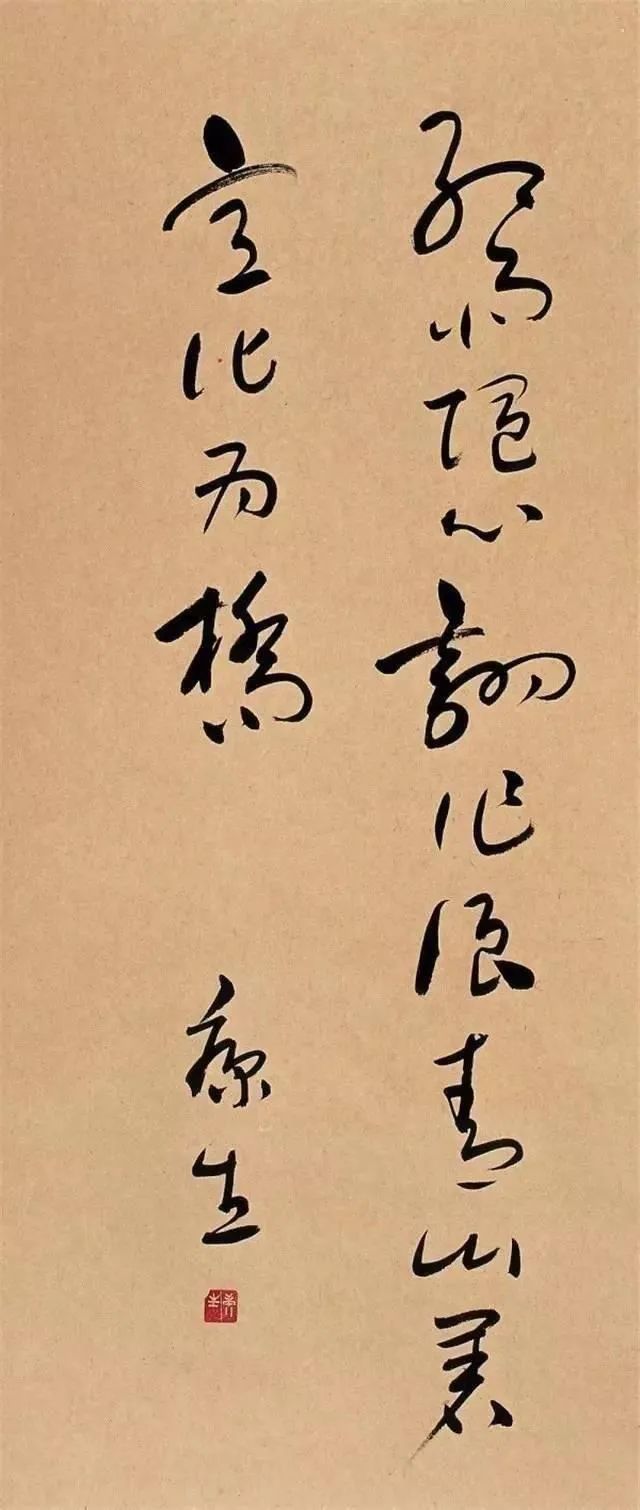 红雨随心翻作浪青山着
意化为橋
康生